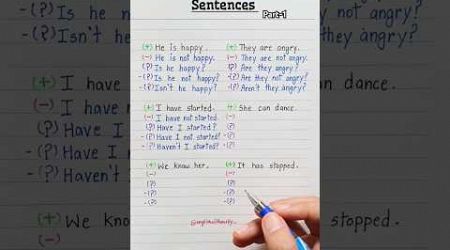 Sentences
Part-1
(+) He is happy.
(-) He is not happy.
(?) Is he happy?
-(?) Is he not happy?
-(?) Isn't he happy?
(+) They are angry.
(-) They are not angry.
(?) Are they angry?
-(?) Are they not angry?
-(?) Aren't they angry?
(+) I have started.
(-) I have not started.
(?) Have I started?
-(?) Have I not started?
-(?) Haven't I started?
(+) She can dance.
(-)
(?)
-(?)
-(?)
(+) We know her.
(-)
(?)
-(?)
-(?)
(+) It has stopped.
(-)
(?)
-(?)
-(?)
-(?) Is he
-(?) Isn't he
(+) I have
(-) I have
(?) Have I
-(?) Have I
-(?) Haven't
(+) We know
not angry?
angry?
can dance.
stopped.